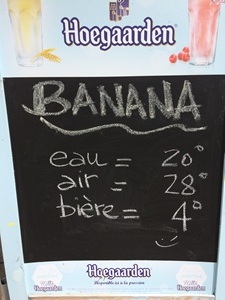 Hoegaarden
BANANA
eau = 20°
air = 28°
bière = 4°
Hoegaarden
Hoegaarden
Hoegaarden
Disponible ici à la pression